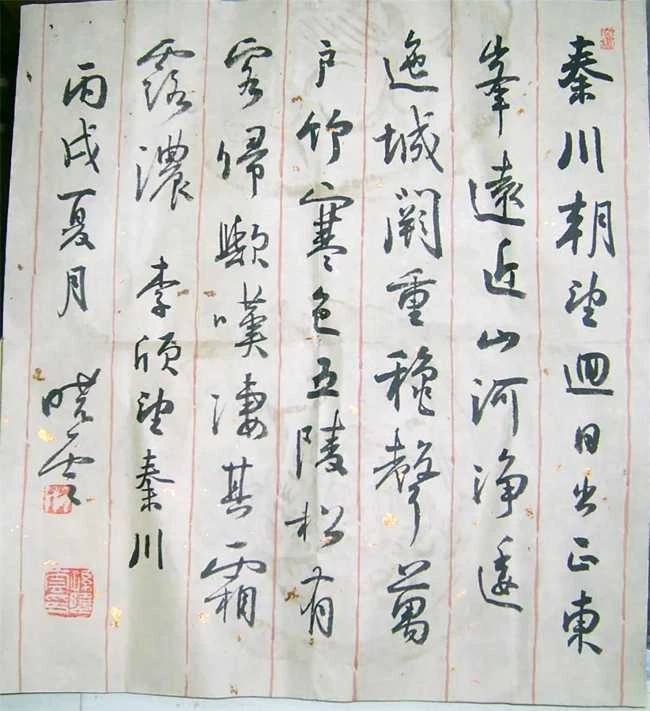 秦川朝望逈日出正東
峯遠近山河净逶
迤城闕重穐聲萬
戶竹寒色五陵松有
客歸歟嘆凄其霜
露濃 李頎望秦川
丙戌夏月 曉雲